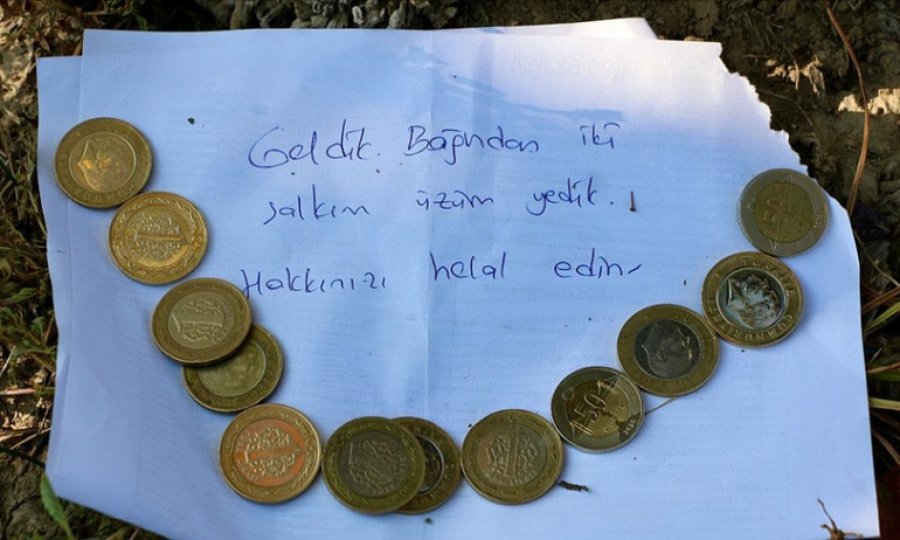 Geldik. Bağından iki
salkım üzüm yedik.
Hakkınızı helal edin